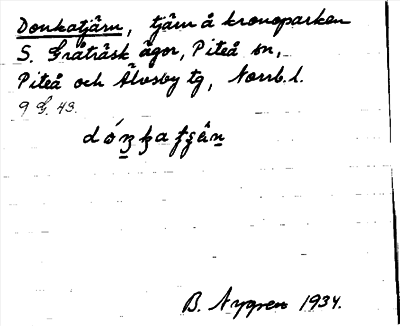 Donkatjärn, tjärn å kronoparken
S. Gråträsk ägor, Piteå sn,
Piteå och Älvsby tg, Norrb. l.
9 G. 43.
B. Nygren 1934.